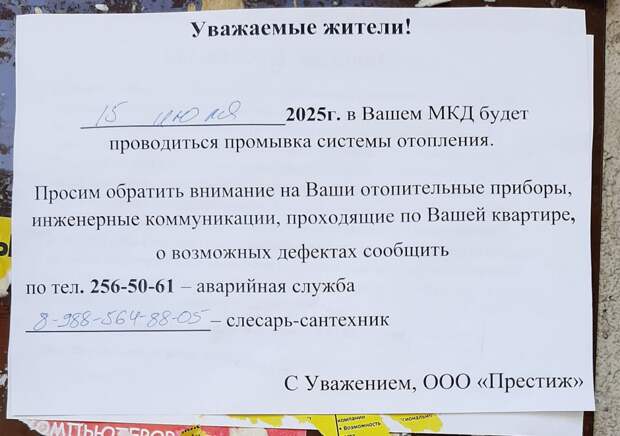 Уважаемые жители!
15 июля 2025г. в Вашем МКД будет
проводиться промывка системы отопления.
Просим обратить внимание на Ваши отопительные приборы,
инженерные коммуникации, проходящие по Вашей квартире,
о возможных дефектах сообщить
по тел. 256-50-61 – аварийная служба
8-988-564-88-05 – слесарь-сантехник
С Уважением, ООО «Престиж»
компании
• Возможность